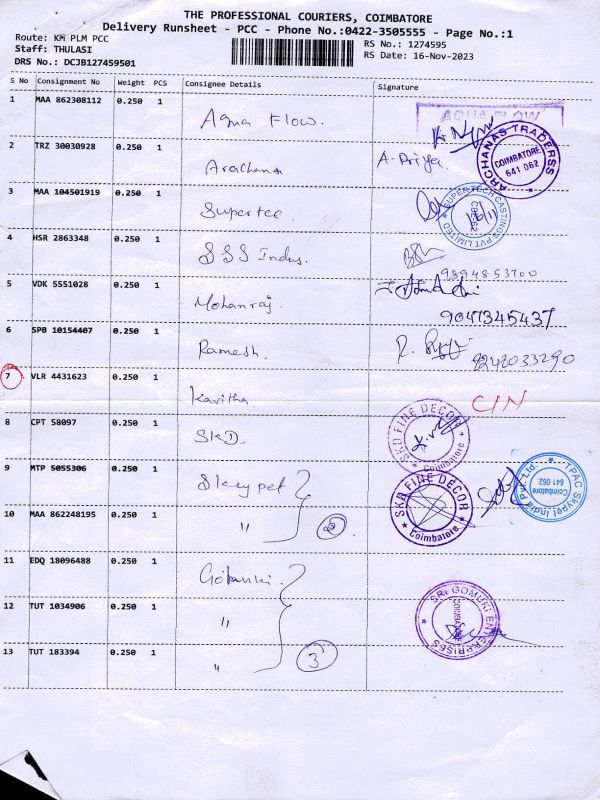 THE PROFESSIONAL COURIERS, COIMBATORE
Delivery Runsheet - PCC - Phone No.:0422-3505555 - Page No.:1
Route: KM PLM PCC
RS No.: 1274595
Staff: THULASI
RS Date: 16-Nov-2023
DRS No.: DCJB127459501
S No Consignment No Weight PCS Consignee Details Signature
1 MAA 862308112 0.250 1 Aqua Flow. AQUA FLOW
2 TRZ 30030928 0.250 1 Archana A. Priya ARCHANAS TRADERSS COIMBATORE 641 062
3 MAA 104501919 0.250 1 Supertec. SUPER TECH CASTINGS PVT LIMITED
4 HSR 2863348 0.250 1 SSS Indus. 9894853700
5 VDK 5551028 0.250 1 Mohanraj. 9047345437
6 SPB 10154407 0.250 1 Ramesh. 8248033290
7 VLR 4431623 0.250 1 Kavitha. C/N
8 CPT 58097 0.250 1 SKD. SKD FINE DECOR Coimbatore
9 MTP 5055306 0.250 1 Skypet SKR FINE DECOR Coimbatore TPAC Skypet India Pvt. Ltd. Coimbatore 641 062
10 MAA 862248195 0.250 1 " 2
11 EDQ 18096488 0.250 1
12 TUT 1034906 0.250 1 " SRI GOMUKI ENTERPRISES
13 TUT 183394 0.250 1 " 3